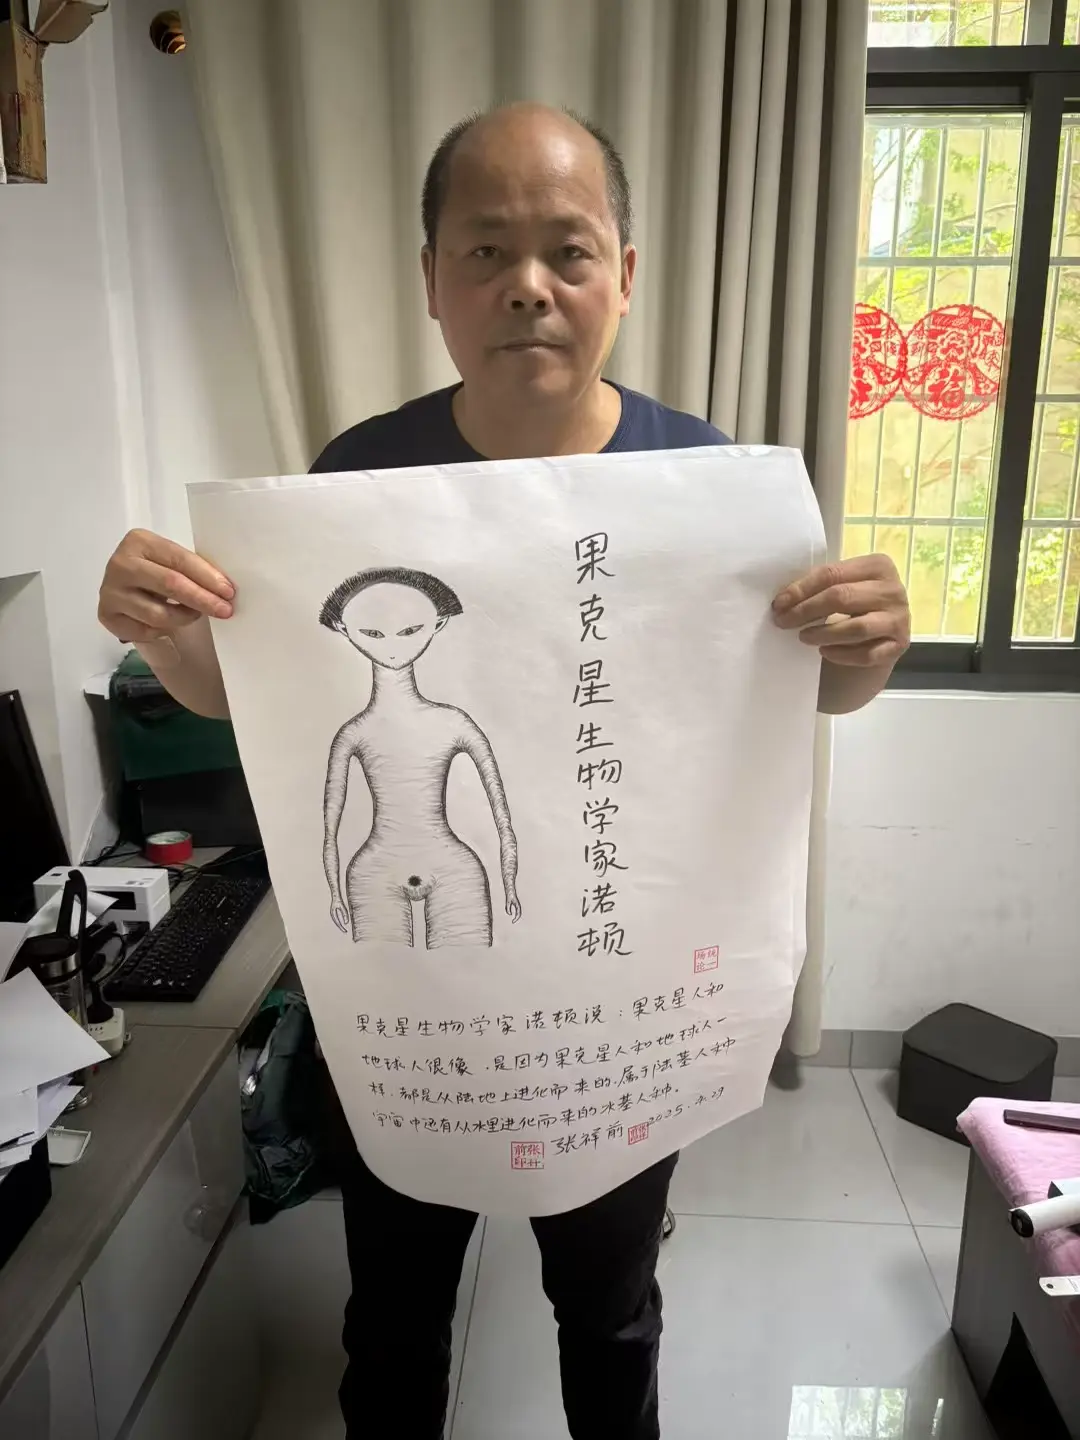 果克星生物学家诺顿
统一场论
果克星生物学家诺顿说：果克星人和
地球人很像，是因为果克星人和地球人一
样，都是从陆地上进化而来的，属于陆基人种。
宇宙中还有从水里进化而来的水基人种。
张祥前
2025.4.29
张祥前印
福